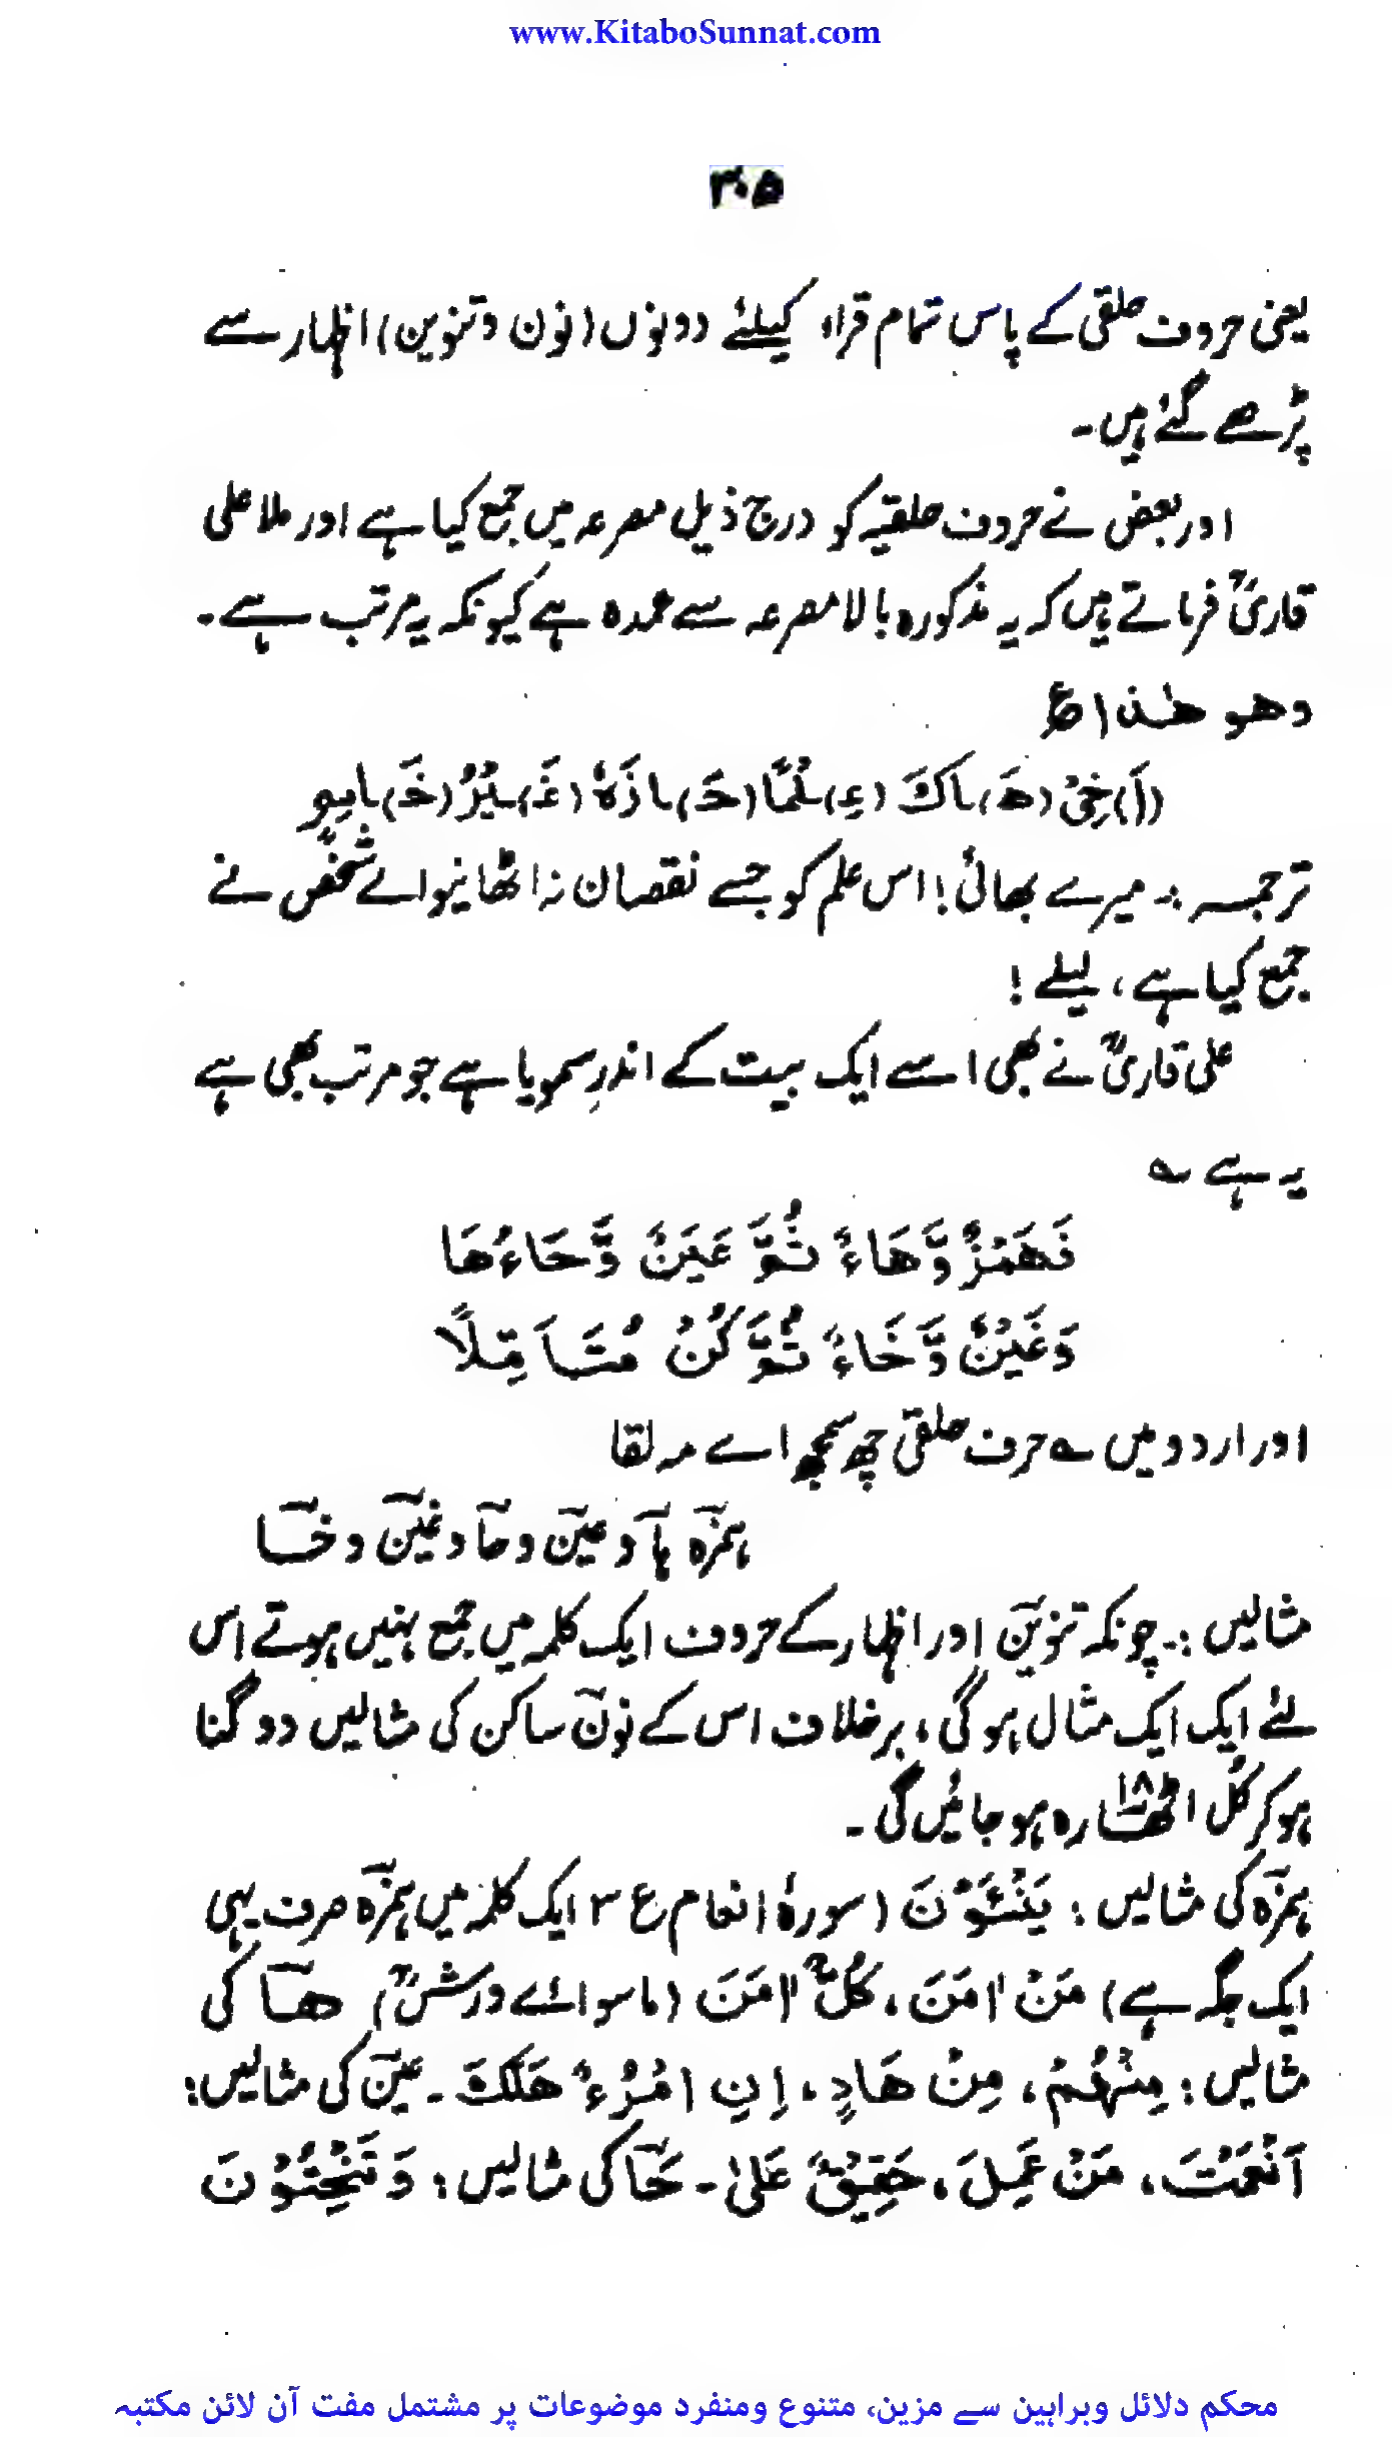 www.KitaboSunnat.com
۳۰۵
یعنی حروف حلقی کے پاس تمام قراء کیلئے دونوں (نون و تنوین) اظہار سے
پڑھے گئے ہیں۔
اور بعض نے حروف حلقیہ کو درج ذیل مصرعہ میں جمع کیا ہے اور ملا علی
قاریؒ فرماتے ہیں کہ یہ مذکورہ بالا مصرعہ سے عمدہ ہے کیونکہ یہ مرتب ہے۔
وھو ھٰذا ع
(اَ)خِیْ (ھَ)اکَ (عِ)لْمًا (حَ)ازَہٗ (غَ)یْرُ (خَ)اسِرٍ
ترجمہ :۔ میرے بھائی! اس علم کو جسے نقصان نہ اٹھانیوالے شخص نے
جمع کیا ہے، لیلے !
علی قاریؒ نے بھی اسے ایک بیت کے اندر سمویا ہے جو مرتب بھی ہے
یہ ہے ؎
فَهَمْزٌ وَّهَاءٌ ثُمَّ عَیْنٌ وَّحَاءُهَا
وَغَیْنٌ وَّخَاءٌ ثُمَّ کُنْ مُتَاَمِّلًا
اور اردو میں ؎ حرف حلقی چھ سمجھ اے مہ لقا
ہمزہ ہآ و عین و حآ و غین و خآ
مثالیں :۔ چونکہ تنوین اور اظہار کے حروف ایک کلمہ میں جمع نہیں ہوتے اس
لئے ایک ایک مثال ہوگی، برخلاف اس کے نون ساکن کی مثالیں دوگنا
ہوکر کل اٹھارہ ۱۸ ہو جائیں گی۔
ہمزہ کی مثالیں : یَنْئَوْنَ (سورۂ انعام ع ۳ ایک کلمہ میں ہمزہ صرف یہی
ایک جگہ ہے) مَنْ اٰمَنَ، کُلٌّ اٰمَنَ (ماسوائے ورشؒ) ھآ کی
مثالیں : مِنْهُمْ، مِنْ هَادٍ، اِنِ امْرُءٌ هَلَکَ۔ عین کی مثالیں:
اَنْعَمْتَ، مَنْ عَمِلَ، حَقِیْقٌ عَلٰی۔ حَآ کی مثالیں : وَتَنْحِتُوْنَ
محکم دلائل وبراہین سے مزین، متنوع ومنفرد موضوعات پر مشتمل مفت آن لائن مکتبہ